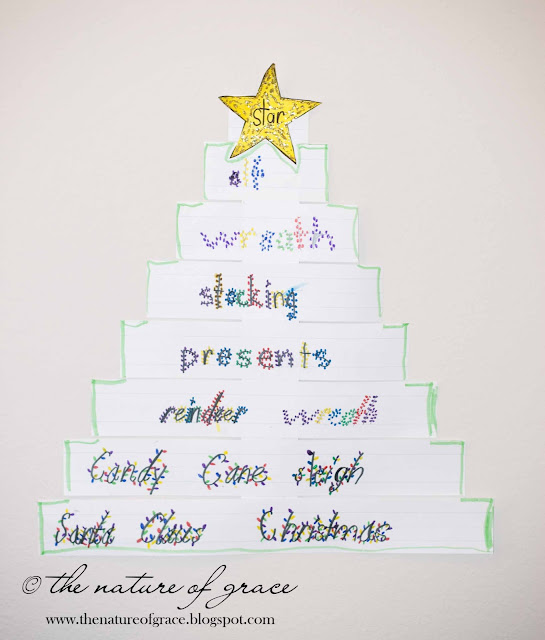 star
elf
wreath
stocking
presents
reindeer
Candy Cane sleigh
Santa Claus Christmas
© the nature of grace
www.thenatureofgrace.blogspot.com